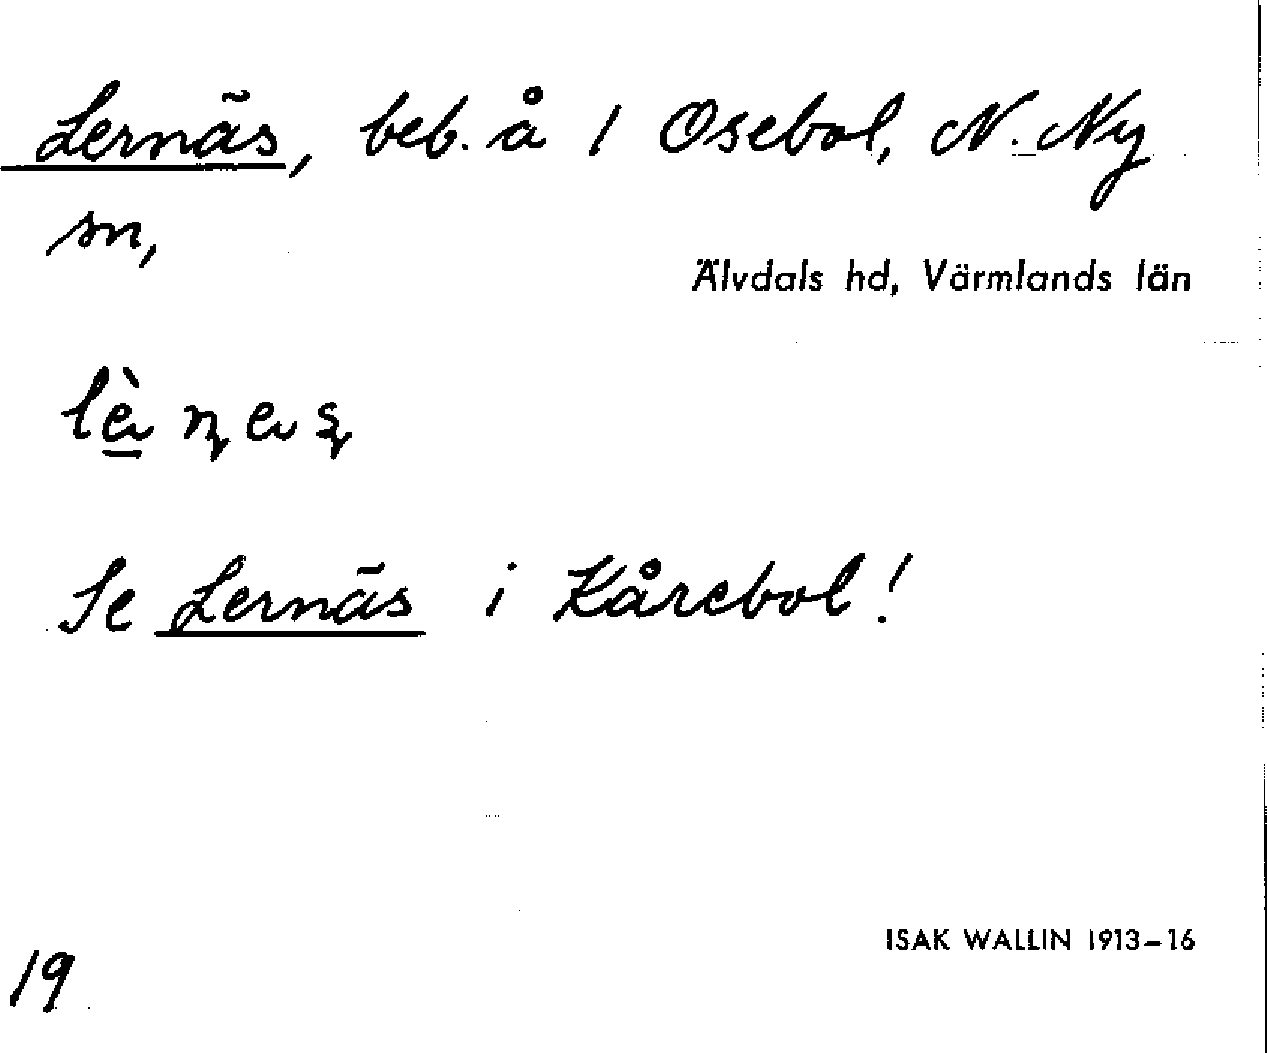 Lernäs, beb. å 1 Osebol, N. Ny
sn,
Älvdals hd, Värmlands län
Se Lernäs i Kårebol!
ISAK WALLIN 1913-16
19